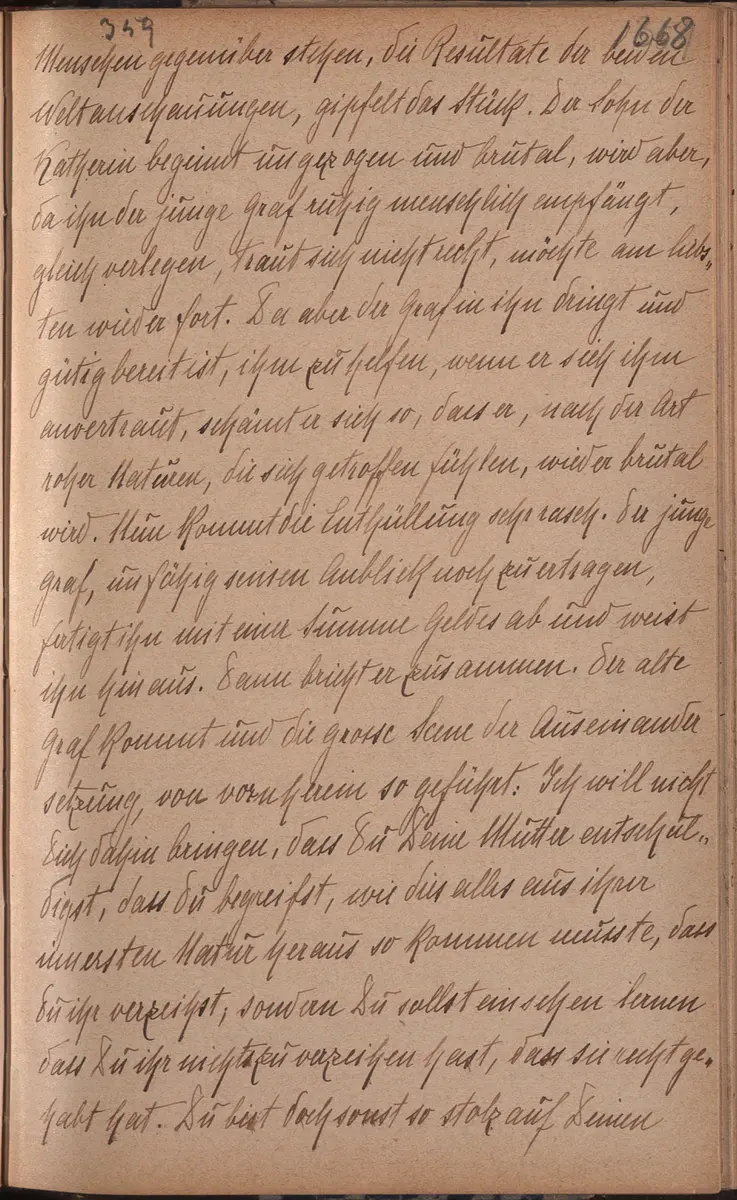 359
1668
Menschen gegenüber stehen, die Resultate der beiden
Weltanschauungen, gipfelt das Stück. Der Sohn der
Katherin beginnt ungezogen und brutal, wird aber,
da ihn der junge Graf ruhig menschlich empfängt,
gleich verlegen, traut sich nicht recht, möchte am liebs„
ten wieder fort. Da aber der Graf in ihn dringt und
gütig bereit ist, ihm zu helfen, wenn er sich ihm
anvertraut, schämt er sich so, dass er, nach der Art
roher Naturen, die sich getroffen fühlen, wieder brutal
wird. Nun kommt die Enthüllung sehr rasch. Der junge
Graf, unfähig seinen Anblick noch zu ertragen,
fertigt ihn mit einer Summe Geldes ab und weist
ihn hinaus. Dann bricht er zusammen. Der alte
Graf kommt und die grosse Scene der Auseinander
setzung, von vornherein so geführt: Ich will nicht
Dich dahin bringen, dass Du Deine Mutter entschul„
digst, dass Du begreifst, wie dies alles aus ihrer
innersten Natur heraus so kommen musste, dass
Du ihr verzeihst, sondern Du sollst einsehen lernen
dass Du ihr nichts zu verzeihen hast, dass sie recht ge„
habt hat. Du bist doch sonst so stolz auf Deinen